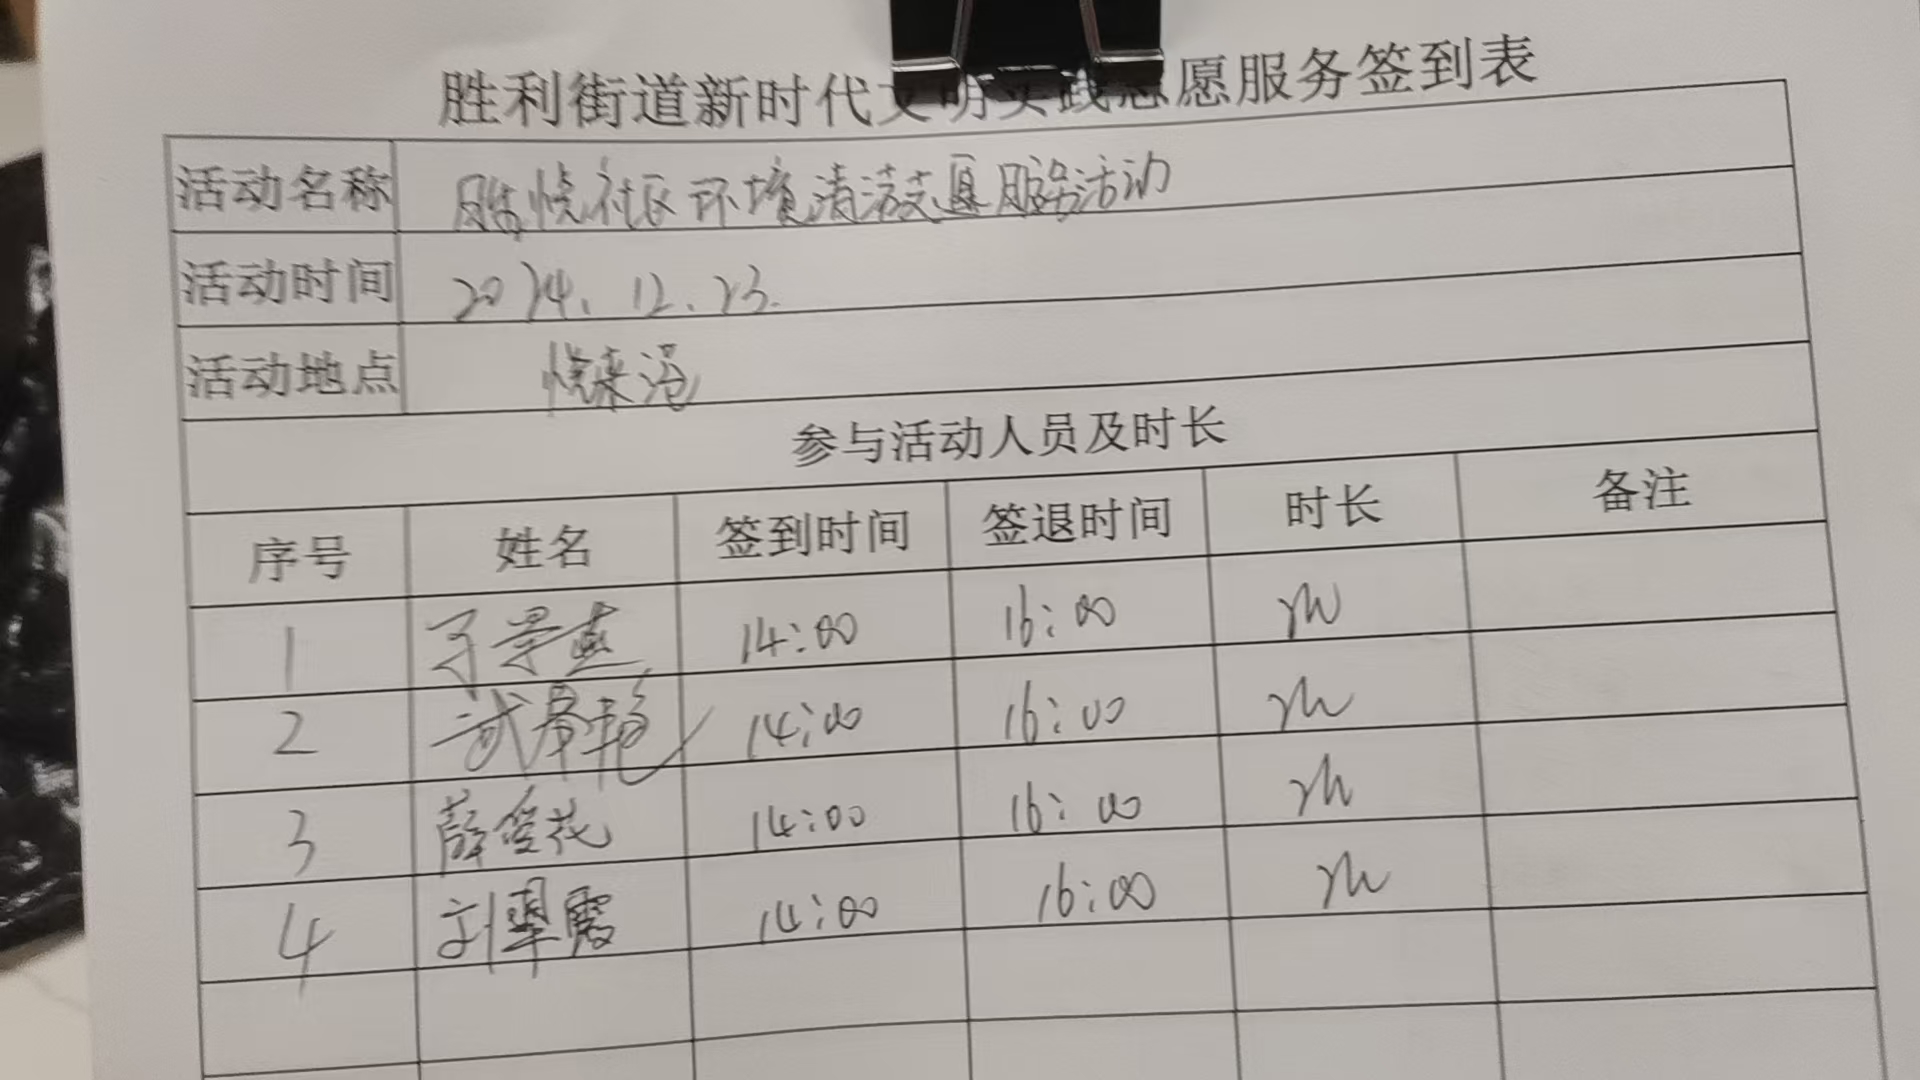 胜利街道新时代文明实践志愿服务签到表
活动名称 胜悦社区环境清洁志愿服务活动
活动时间 2024.12.23.
活动地点 悦来湾
参与活动人员及时长
序号 姓名 签到时间 签退时间 时长 备注
1 14:00 16:00 2h
2 14:00 16:00 2h
3 薛爱花 14:00 16:00 2h
4 刘翠霞 14:00 16:00 2h